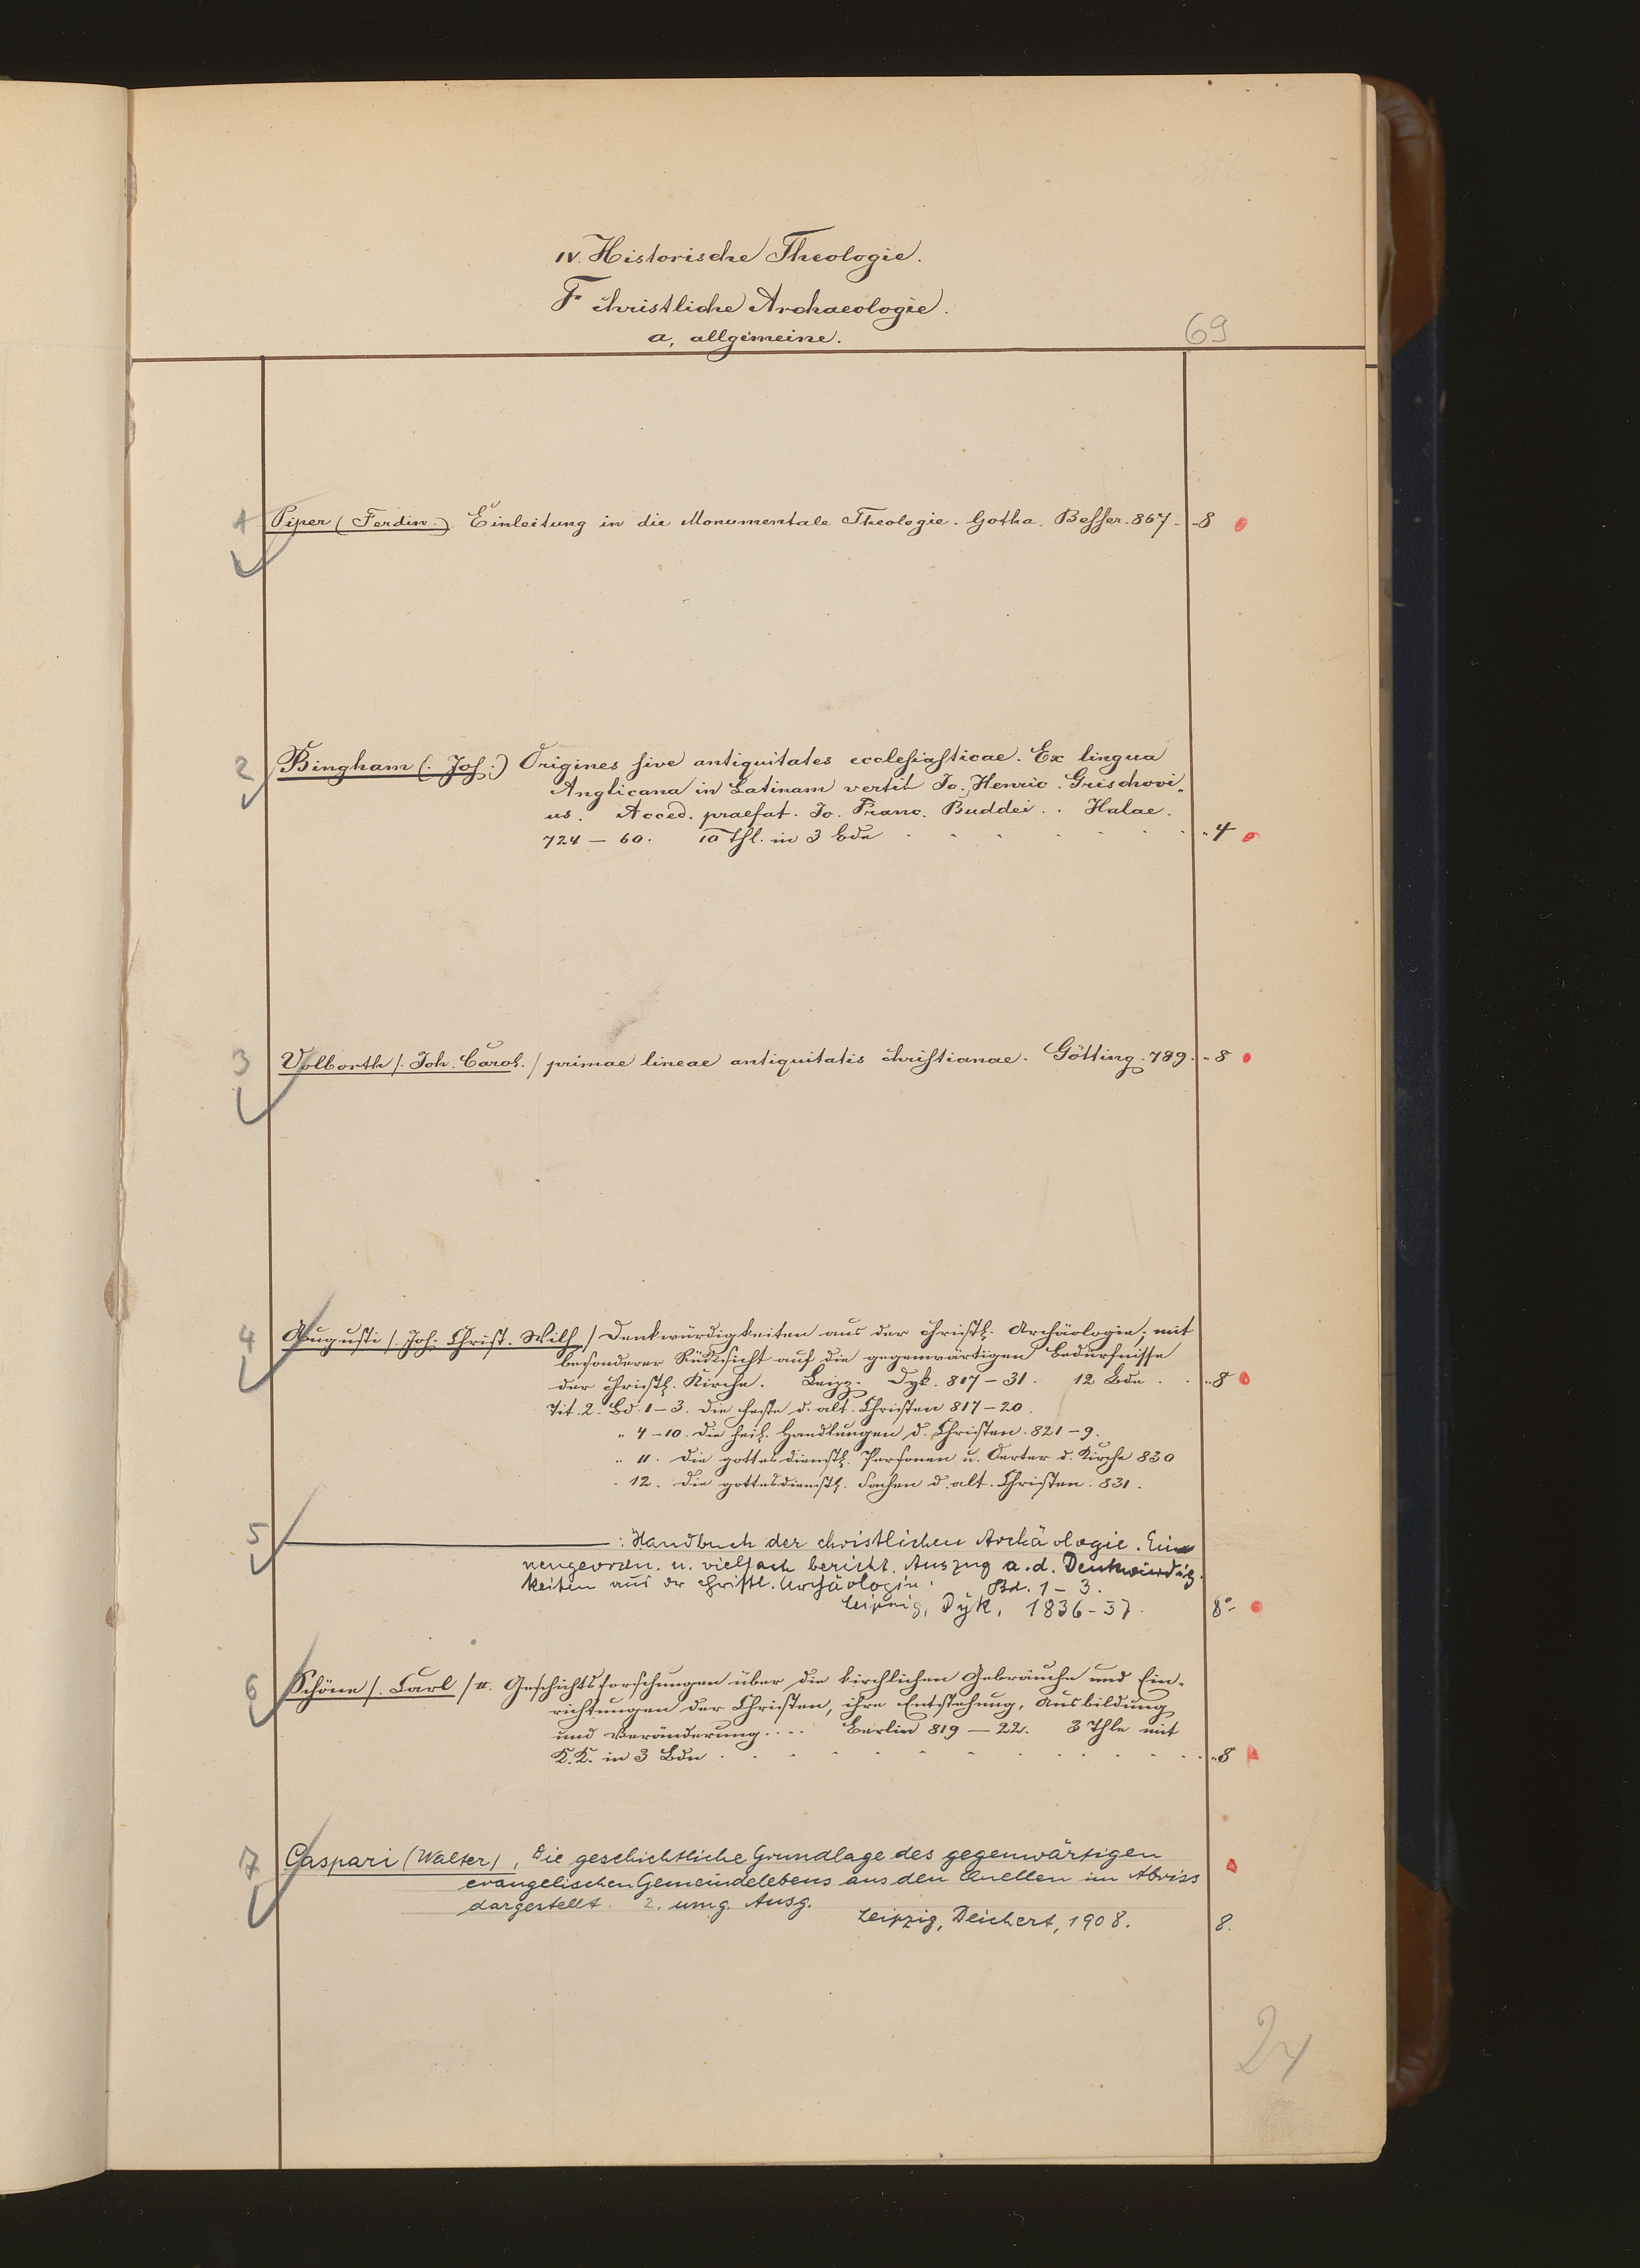 IV. Historische Theologie.
F christliche Archaeologie.
a, allgemeine.
69
1 Piper (Ferdin.) Einleitung in die Monumentale Theologie. Gotha. Besser. 867. 8
2 Bingham (. Jos.) Origines sive antiquitates ecclesiasticae. Ex lingua
Anglicana in Latinam vertit Jo. Henric. Grischovi-
us. Acced. praefat. Jo. Franc. Buddei. . Halae.
724 — 60. 10 Thl. in 3 Bdn 4
3 Volborth /. Joh. Carol. / primae lineae antiquitatis christianae. Götting. 789. 8
4 Augusti /. Joh. Christ. Wilh. / Denkwürdigkeiten aus der christl. Archäologie; mit
besonderer Rücksicht auf die gegenwärtigen Bedürfnisse
der christl. Kirche. Leipz. Dyk. 817 — 31. 12 Bde. . . 8
Tit. 2. Bd. 1 — 3. Die Feste d. alt. Christen 817 — 20.
" 4 — 10. Die heil. Handlungen d. Christen. 821 — 9.
" 11. Die gottesdienstl. Personen u. Oerter d. Kirche 830
" 12. Die gottesdienstl. Sachen d. alt. Christen. 831.
5 ——— : Handbuch der christlichen Archäologie. Ein
neugeordn. u. vielfach bericht. Auszug a. d. Denkwürdig-
keiten aus der christl. Archäologie. Bd. 1 — 3.
Leipzig, Dyk, 1836 - 37. 8°
6 Schöne /. Carl / Geschichtsforschungen über die kirchlichen Gebräuche und Ein-
richtungen der Christen, ihre Entstehung, Ausbildung
und Veränderung. . . . Berlin 819 — 22. 3 Thle mit
K. K. in 3 Bdn 8
7 Caspari (Walter), Die geschichtliche Grundlage des gegenwärtigen
evangelischen Gemeindelebens aus den Quellen im Abriss
dargestellt. 2. umg. Ausg.
Leipzig, Deichert, 1908. 8.
24